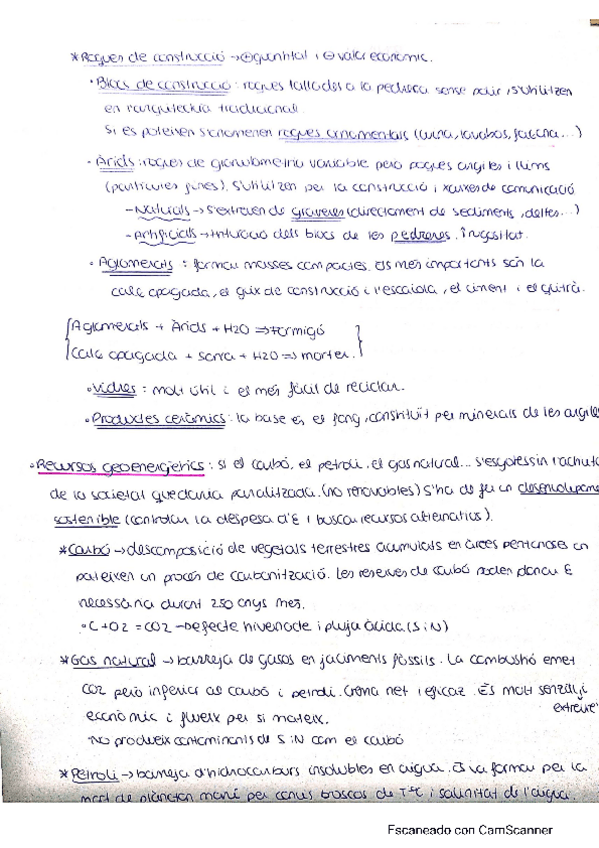 *Roques de construcció → ⊕quantitat i ⊖valor econòmic.
· Blocs de construcció: roques tallades a la pedrera sense polir, s'utilitzen
en l'arquitectura tradicional.
Si es poleixen s'anomenen roques ornamentals (cuina, lavabos, façana...)
· Àrids: roques de granulometria variable però poques argiles i llims
(partícules fines). S'utilitzen per la construcció i xarxes de comunicació
- Naturals → s'extreuen de graveres (directament de sediments, deltes...)
- Artificials → trituració dels blocs de les pedreres.
· Aglomerats: formen masses compactes. Els més importants són la
calç apagada, el guix de construcció i l'escaiola, el ciment i el quitrà.
Aglomerats + Àrids + H2O ⇒ formigó
Calç apagada + sorra + H2O ⇒ morter.
· Vidres: molt útil i el més fàcil de reciclar.
· Productes ceràmics: la base és el fang, constituït per minerals de les argiles
· Recursos geoenergètics: si el carbó, el petroli, el gas natural... s'esgotessin l'actual
de la societat quedaria paralitzada. (no renovables) S'ha de fer un desenvolupame
sostenible (controlar la despesa d'E i buscar recursos alternatius).
*Carbó → descomposició de vegetals terrestres acumulats en àrees pantanoses on
pateixen un procés de carbonització. Les reserves de carbó poden donar E
necessària durant 250 anys més.
· C + O2 = CO2 → efecte hivernacle i pluja àcida (S i N)
*Gas natural → barreja de gasos en jaciments fòssils. La combustió emet
CO2 però inferior al carbó i petroli. Crema net i eficaç. És molt senzill i
extreure
econòmic i flueix per si mateix.
No produeix contaminants de S i N com el carbó
*Petroli → barreja d'hidrocarburs insolubles en aigua. Es va formar per la
mort de plàncton marí per canvis bruscos de TªC i salinitat de l'aigua.
Escaneado con CamScanner